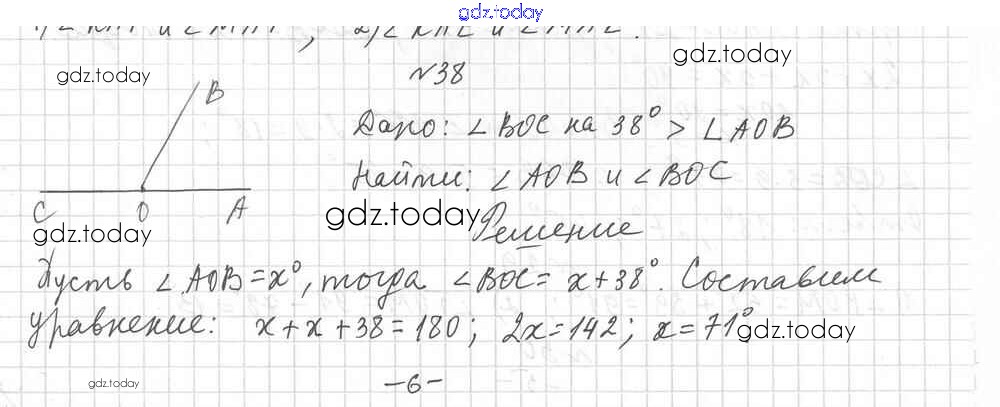 gdz.today
№38
gdz.today
gdz.today
B
Дано: ∠BOC на 38° > ∠AOB
Найти: ∠AOB и ∠BOC
C O A
gdz.today
gdz.today
Решение
Пусть ∠AOB = x°, тогда ∠BOC = x + 38°. Составим
уравнение: x + x + 38 = 180; 2x = 142; x = 71°
gdz.today
gdz.today
–6–